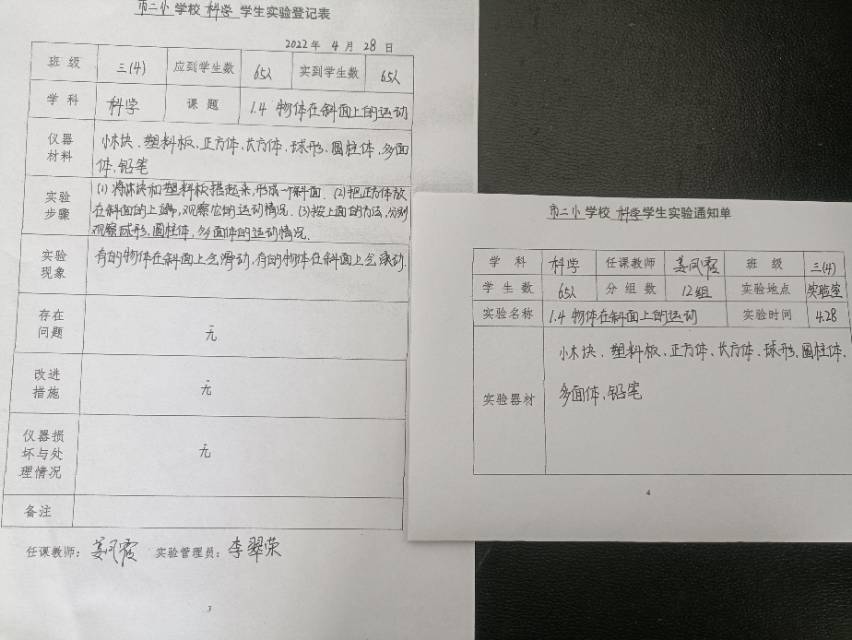 市二小 学校 科学 学生实验登记表
2022 年 4 月 28 日
班 级 三(4) 应到学生数 65人 实到学生数 65人
学 科 科学 课 题 1.4 物体在斜面上的运动
仪器材料 小木块、塑料板、正方体、长方体、球形、圆柱体、多面
体、铅笔
实验步骤 (1) 将木块和塑料板搭起来,形成一个斜面. (2)把正方体放
在斜面的上端,观察它的运动情况. (3)按上面的方法,分别
观察球形、圆柱体,多面体的运动情况.
实验现象 有的物体在斜面上会滑动,有的物体在斜面上会滚动.
存在问题 无
改进措施 无
仪器损坏与处理情况 无
备注
任课教师: 姜凤霞 实验管理员: 李翠荣
3
市二小 学校 科学 学生实验通知单
学 科 科学 任课教师 姜凤霞 班 级 三(4)
学 生 数 65人 分 组 数 12组 实验地点 实验室
实验名称 1.4 物体在斜面上的运动 实验时间 4.28
实验器材 小木块、塑料板、正方体、长方体、球形、圆柱体、
多面体、铅笔
4